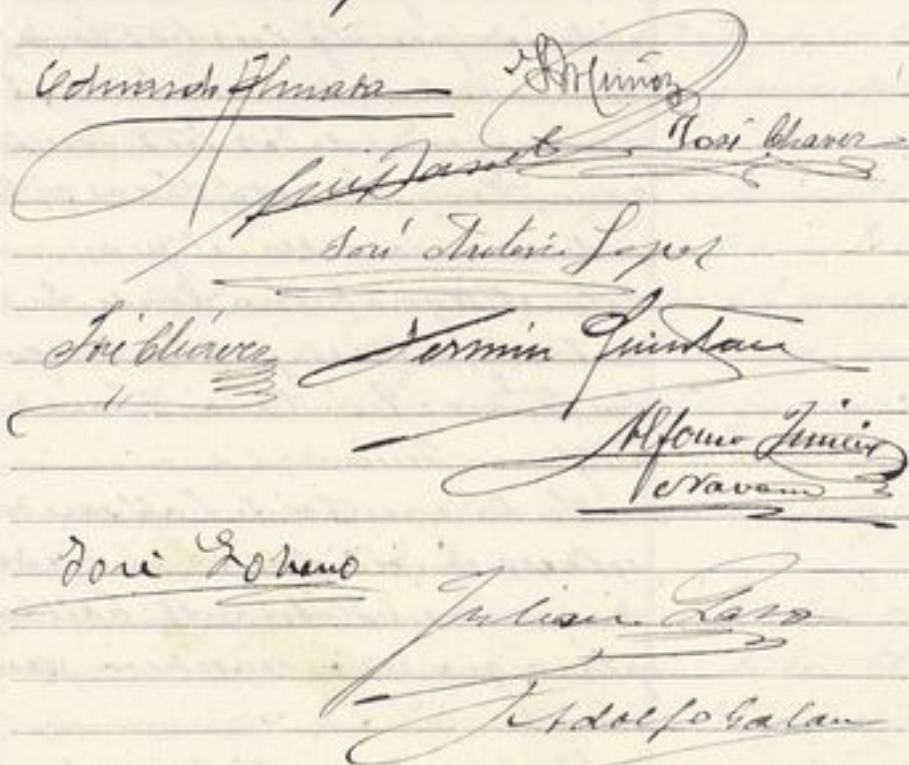 Eduardo Almara
Muñoz
José Chavez
José Antonio Lopez
José Chávez
Fermín Quintana
Alfonso Jimenez
Navarro
José Lozano
Julian Laso
Adolfo Galan